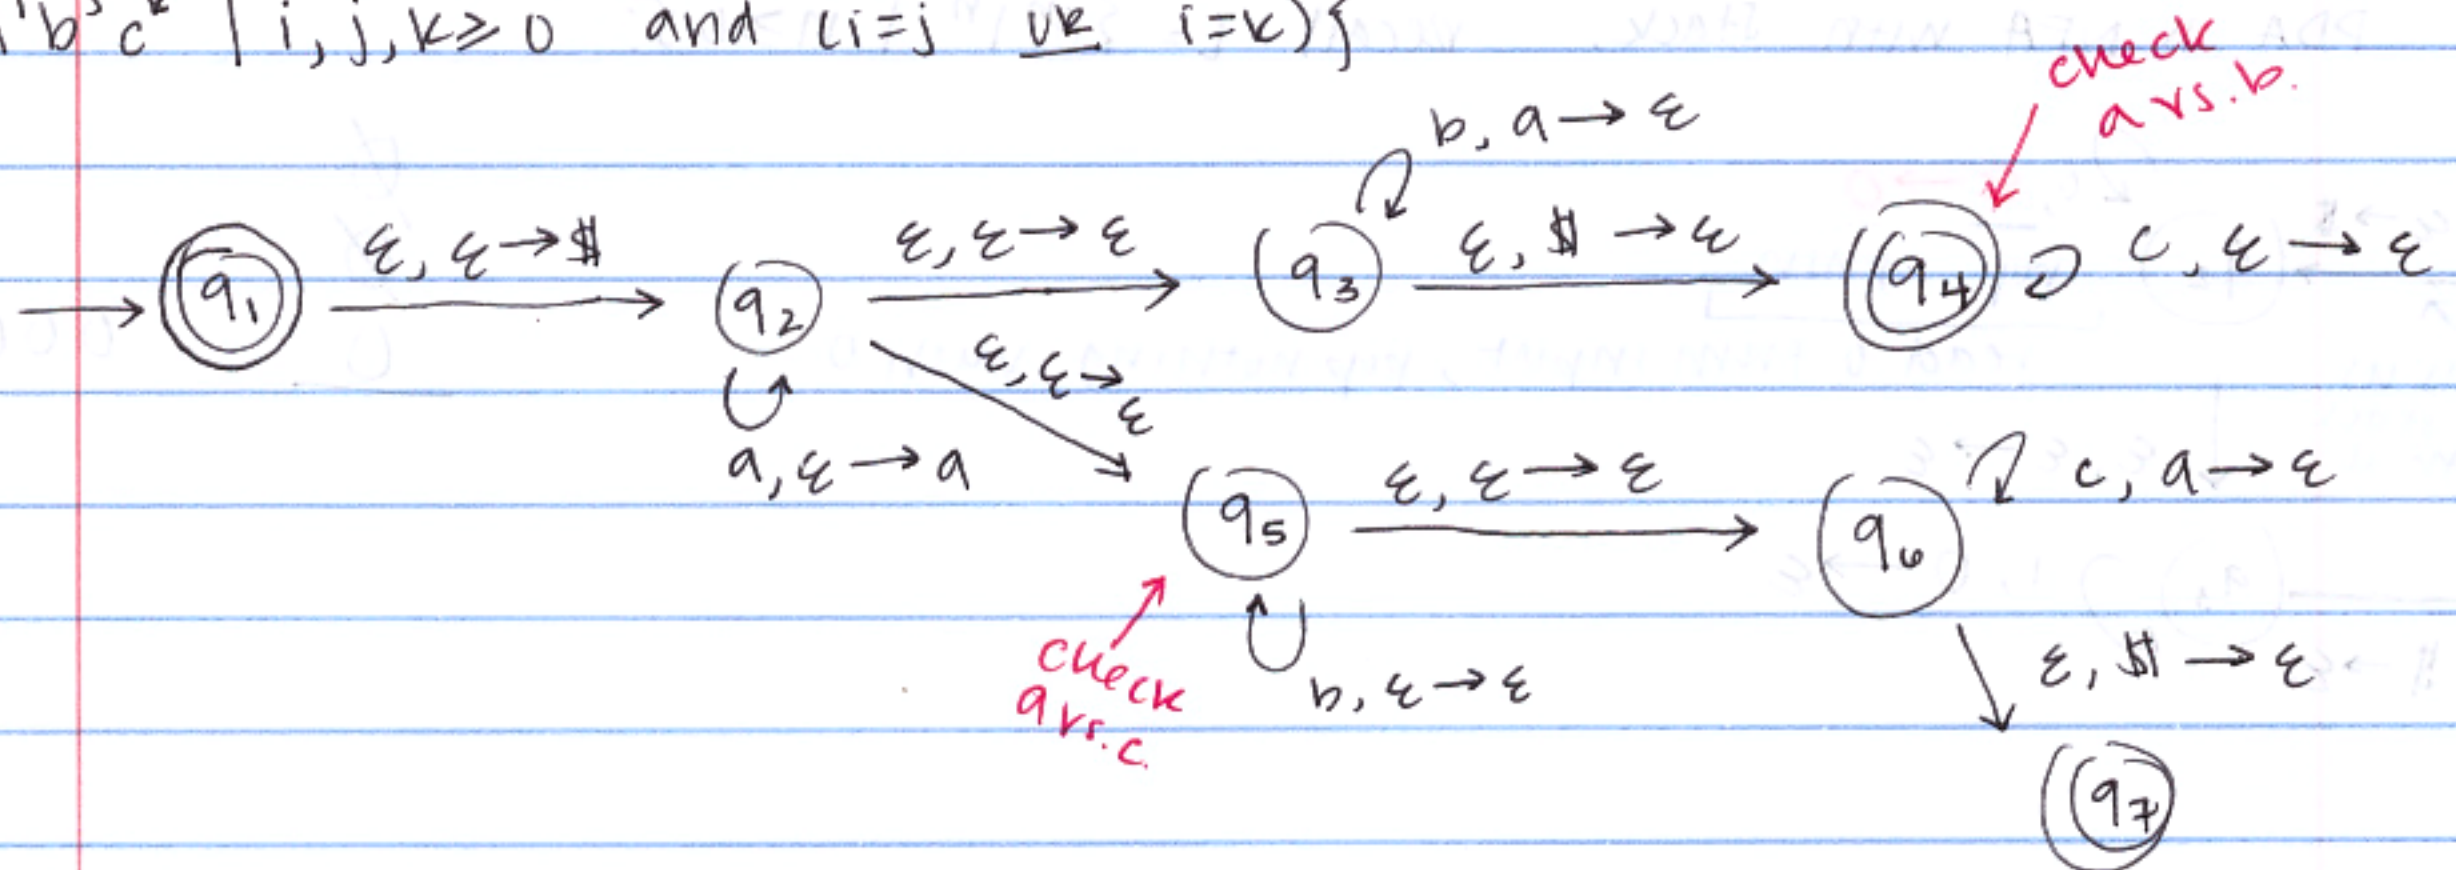 b^j c^k | i, j, k ≥ 0 and (i=j or i=k)}
check
a vs. b.
b, a → ε
q1
ε, ε → $
q2
ε, ε → ε
q3
ε, $ → ε
q4
c, ε → ε
a, ε → a
ε, ε →
ε
q5
ε, ε → ε
q6
c, a → ε
check
a vs. c.
b, ε → ε
ε, $ → ε
q7